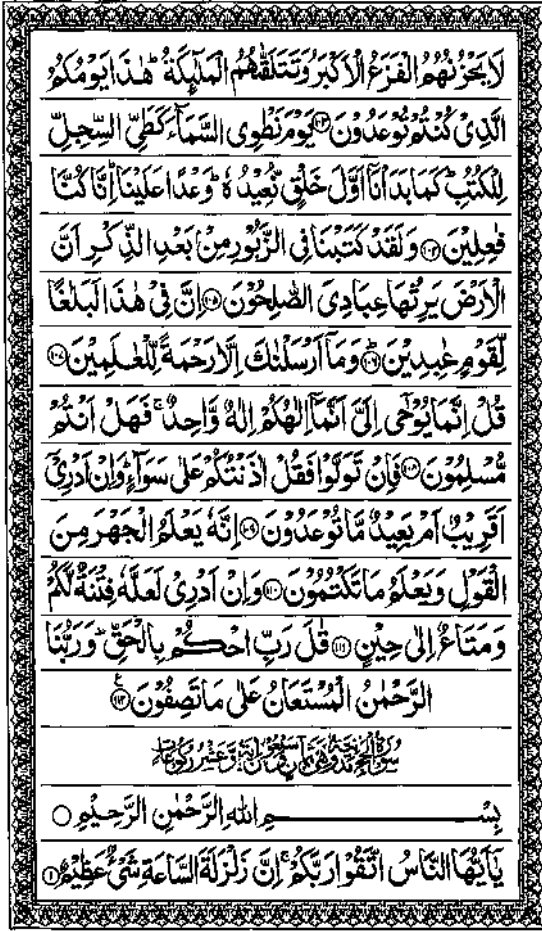 لَا يَحْزُنُهُمُ الْفَزَعُ الْاَكْبَرُ وَتَتَلَقّٰىهُمُ الْمَلٰٓئِكَةُ ؕ هٰذَا يَوْمُكُمُ
الَّذِيْ كُنْتُمْ تُوْعَدُوْنَ ﴿۱۰۳﴾ يَوْمَ نَطْوِي السَّمَآءَ كَطَيِّ السِّجِلِّ
لِلْكُتُبِ ؕ كَمَا بَدَاْنَاۤ اَوَّلَ خَلْقٍ نُّعِيْدُهٗ ؕ وَعْدًا عَلَيْنَا ؕ اِنَّا كُنَّا
فٰعِلِيْنَ ﴿۱۰۴﴾ وَلَقَدْ كَتَبْنَا فِي الزَّبُوْرِ مِنْۢ بَعْدِ الذِّكْرِ اَنَّ
الْاَرْضَ يَرِثُهَا عِبَادِيَ الصّٰلِحُوْنَ ﴿۱۰۵﴾ اِنَّ فِيْ هٰذَا لَبَلٰغًا
لِّقَوْمٍ عٰبِدِيْنَ ﴿۱۰۶﴾ وَمَاۤ اَرْسَلْنٰكَ اِلَّا رَحْمَةً لِّلْعٰلَمِيْنَ ﴿۱۰۷﴾
قُلْ اِنَّمَا يُوْحٰۤى اِلَيَّ اَنَّمَاۤ اِلٰهُكُمْ اِلٰهٌ وَّاحِدٌ ۚ فَهَلْ اَنْتُمْ
مُّسْلِمُوْنَ ﴿۱۰۸﴾ فَاِنْ تَوَلَّوْا فَقُلْ اٰذَنْتُكُمْ عَلٰى سَوَآءٍ ؕ وَاِنْ اَدْرِيْۤ
اَقَرِيْبٌ اَمْ بَعِيْدٌ مَّا تُوْعَدُوْنَ ﴿۱۰۹﴾ اِنَّهٗ يَعْلَمُ الْجَهْرَ مِنَ
الْقَوْلِ وَيَعْلَمُ مَا تَكْتُمُوْنَ ﴿۱۱۰﴾ وَاِنْ اَدْرِيْ لَعَلَّهٗ فِتْنَةٌ لَّكُمْ
وَمَتَاعٌ اِلٰى حِيْنٍ ﴿۱۱۱﴾ قٰلَ رَبِّ احْكُمْ بِالْحَقِّ ؕ وَرَبُّنَا
الرَّحْمٰنُ الْمُسْتَعَانُ عَلٰى مَا تَصِفُوْنَ ﴿۱۱۲﴾ ع
سُوْرَةُ الْحَجِّ
بِسْمِ اللهِ الرَّحْمٰنِ الرَّحِيْمِ ○
يٰۤاَيُّهَا النَّاسُ اتَّقُوْا رَبَّكُمْ ۚ اِنَّ زَلْزَلَةَ السَّاعَةِ شَيْءٌ عَظِيْمٌ ﴿۱﴾